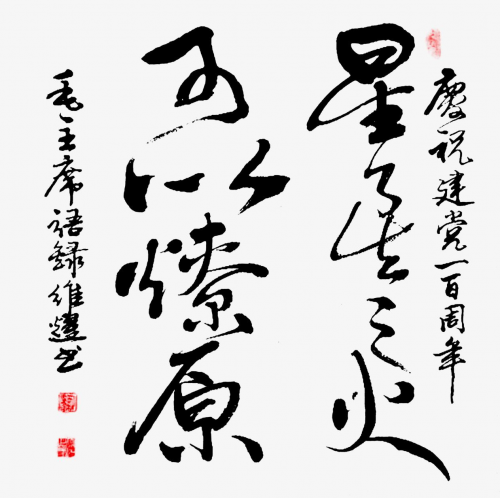 慶祝建党一百周年
星星之火
可以燎原
毛主席语錄維燁书